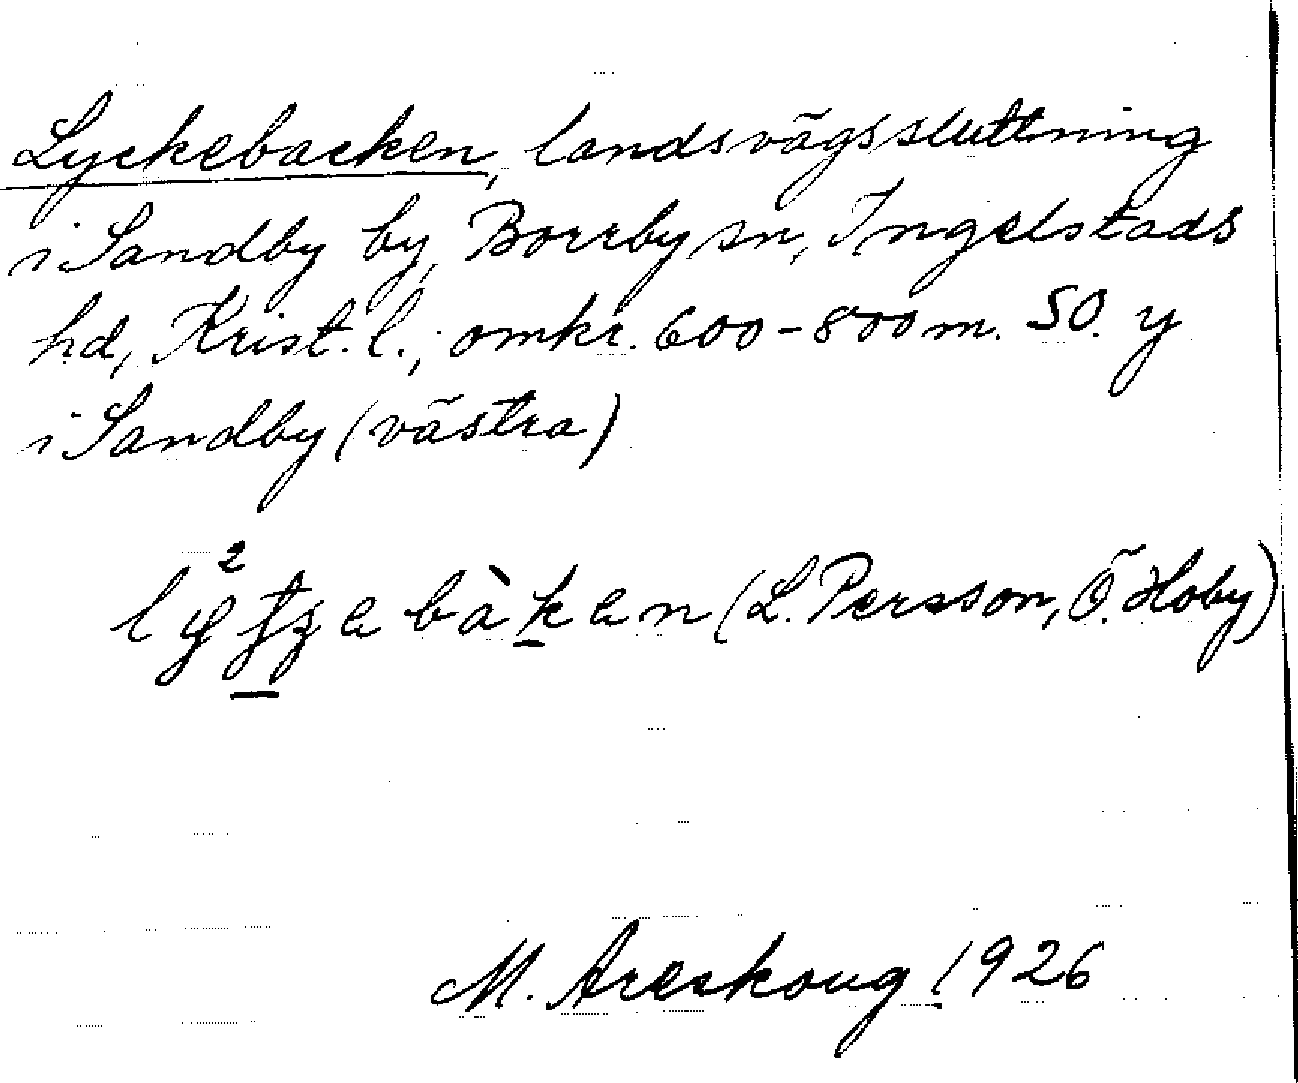 Lyckebacken, landsvägssluttning
i Sandby by, Borrby sn, Ingelstads
hd, Krist. l.; omkr. 600-800 m. SO. y
i Sandby (västra)
(L. Persson, Ö. Hoby)
M. Areskoug 1926